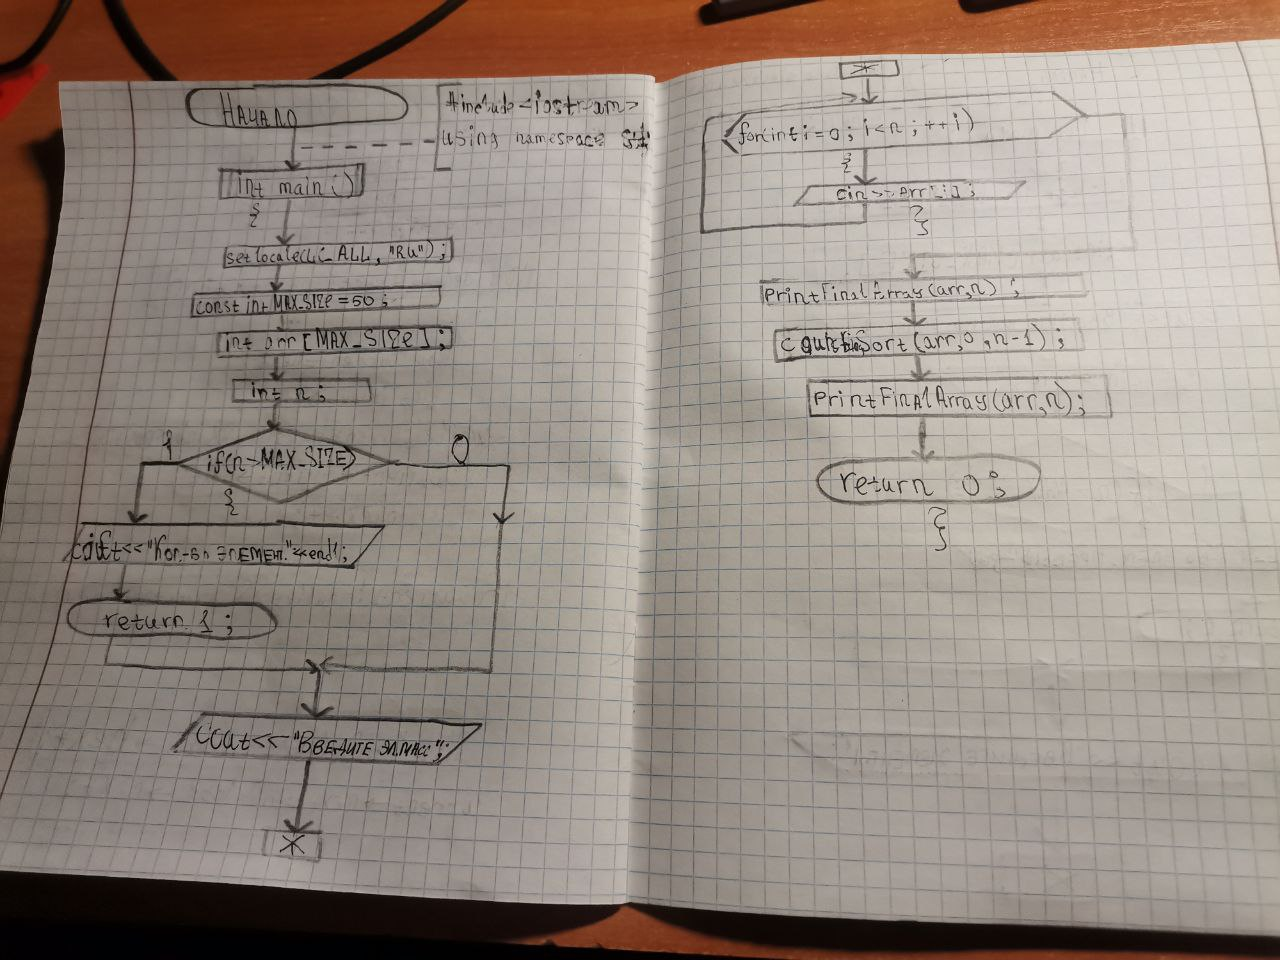 Начало
#include <iostream>
using namespace std;
int main()
{
setlocale(LC_ALL, "RU");
const int MAX_SIZE = 50;
int arr[MAX_SIZE];
int n;
1
0
if(n>MAX_SIZE)
{
cout<<"Кол-во элемент."<<endl;
return 1;
cout<<"Введите эл.масс";
*
*
for(int i=0; i<n; ++i)
{
cin>>arr[i];
}
printFinalArray(arr,n);
Sort(arr,0,n-1);
printFinalArray(arr,n);
return 0;
}